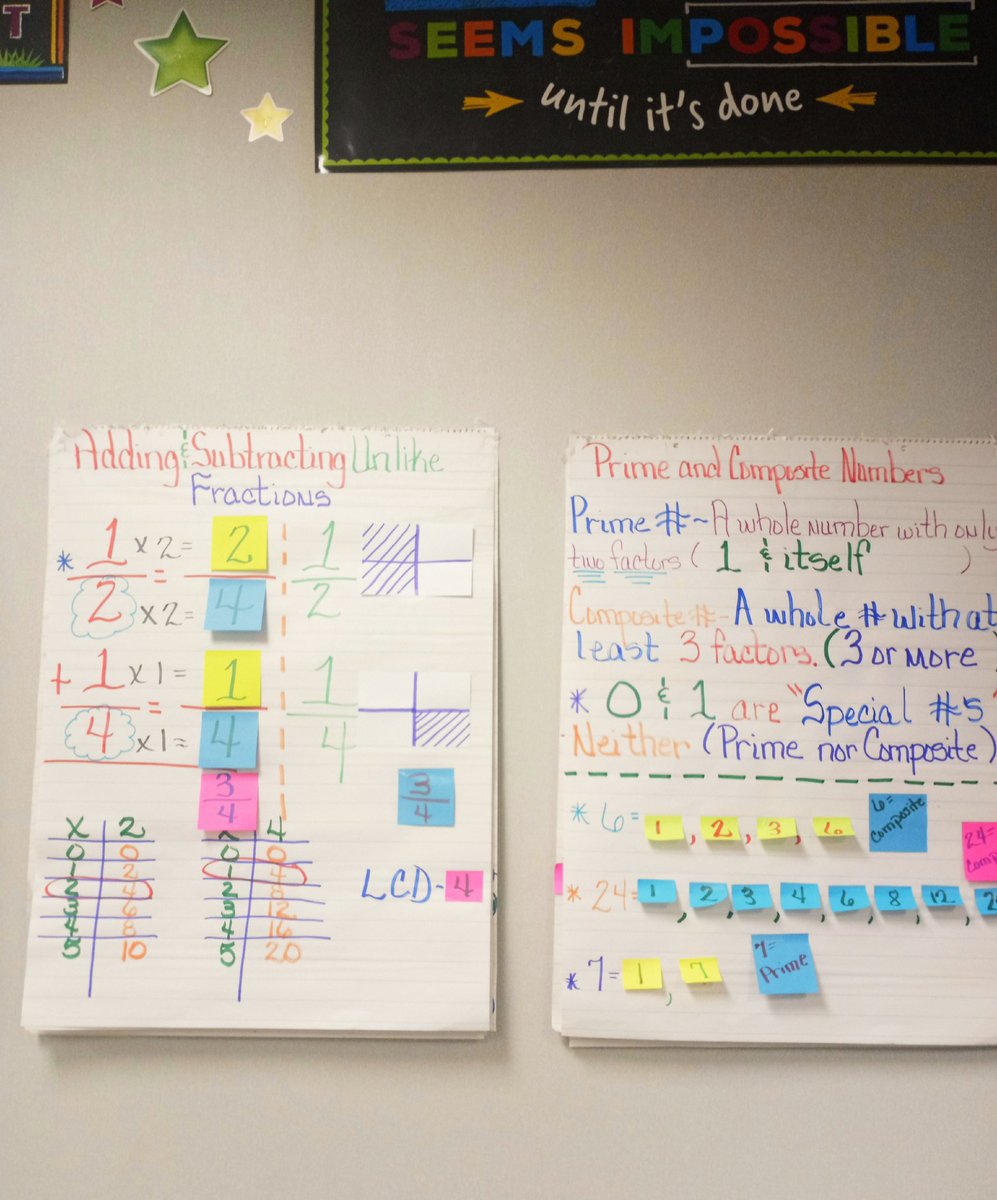 T
SEEMS IMPOSSIBLE
until it's done
Adding & Subtracting Unlike
Fractions
* 1 x 2 = 2 1
2 x 2 = 4 2
+ 1 x 1 = 1 1
4 x 1 = 4 4
3/4 3/4
X 2
0 0
1 2
2 4
3 6
4 8
5 10
4
0 0
1 4
2 8
3 12
4 16
5 20
LCD - 4
Prime and Composite Numbers
Prime # ~ A whole number with only
two factors ( 1 & itself )
Composite # - A whole # with at
least 3 factors. (3 or more
* 0 & 1 are "Special #s"
Neither (Prime nor Composite)
* 6 = 1, 2, 3, 6 6 = Composite
24 =
* 24 = 1, 2, 3, 4, 6, 8, 12,
* 7 = 1, 7 7 = Prime